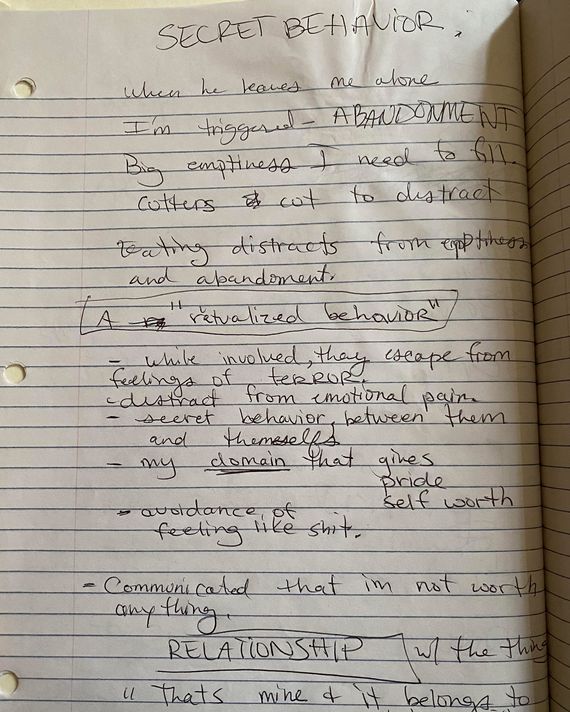 SECRET BEHAVIOR.
when he leaves me alone
I'm triggered - ABANDONMENT
Big emptiness I need to fill.
cutters cut to distract
eating distracts from emptiness
and abandoment.
A "retualized behavior"
- while involved, they escape from
feelings of TERROR.
- distract from emotional pain.
- secret behavior, between them
and themeselfs
- my domain that gives
pride
self worth
- avoidance of
feeling like shit.
- Communicated that im not worth
any thing.
RELATIONSHIP w/ the thing
" Thats mine & it belongs to